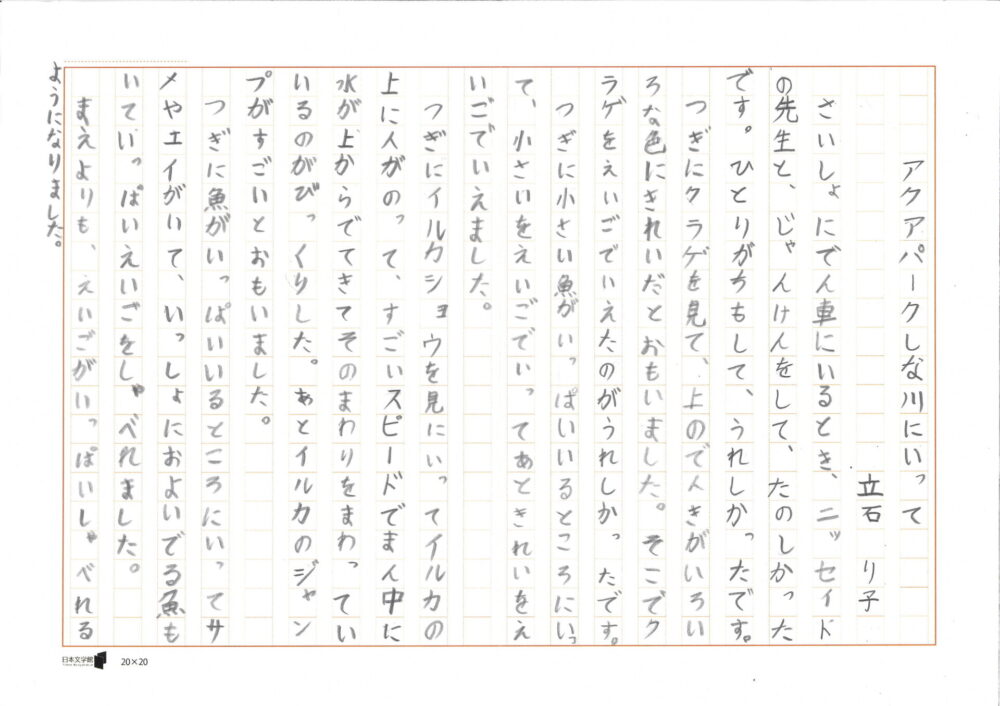 アクアパークしな川にいって
立石 り子
さいしょにでん車にいるとき、ニッセイド
の先生と、じゃんけんをして、たのしかった
です。ひとりがちもして、うれしかったです。
つぎにクラゲを見て、上のでんきがいろい
ろな色にきれいだとおもいました。そこでク
ラゲをえいごでいえたのがうれしかったです。
つぎに小さい魚がいっぱいいるところにいっ
て、小さいをえいごでいってあときれいをえ
いごでいえました。
つぎにイルカショウを見にいってイルカの
上に人がのって、すごいスピードでまん中に
水が上からでてきてそのまわりをまわってい
いるのがびっくりした。あとイルカのジャン
プがすごいとおもいました。
つぎに魚がいっぱいいるところにいってサ
メやエイがいて、いっしょにおよいでる魚も
いていっぱいえいごをしゃべれました。
まえよりも、えいごがいっぱいしゃべれる
ようになりました。
日本文学館
20×20